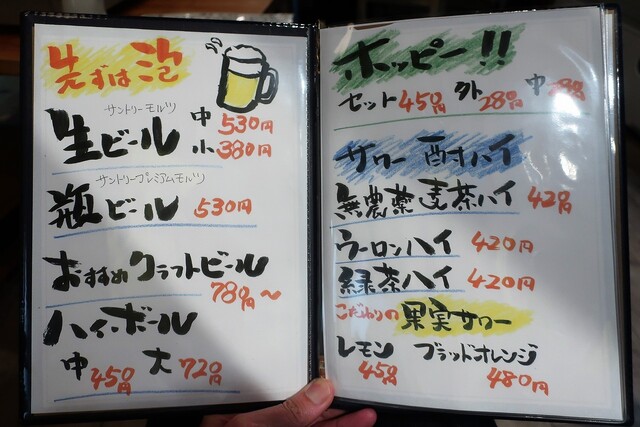 先ずは泡
サントリーモルツ
生ビール 中 530円
小 380円
サントリープレミアムモルツ
瓶ビール 530円
おすすめクラフトビール
780円〜
ハイボール
中 450円 大 720円
ホッピー!!
セット 450円 外 280円 中
サワー 酎ハイ
無農薬麦茶ハイ 420円
ウーロンハイ 420円
緑茶ハイ 420円
こだわりの果実サワー
レモン ブラッドオレンジ
450円 480円